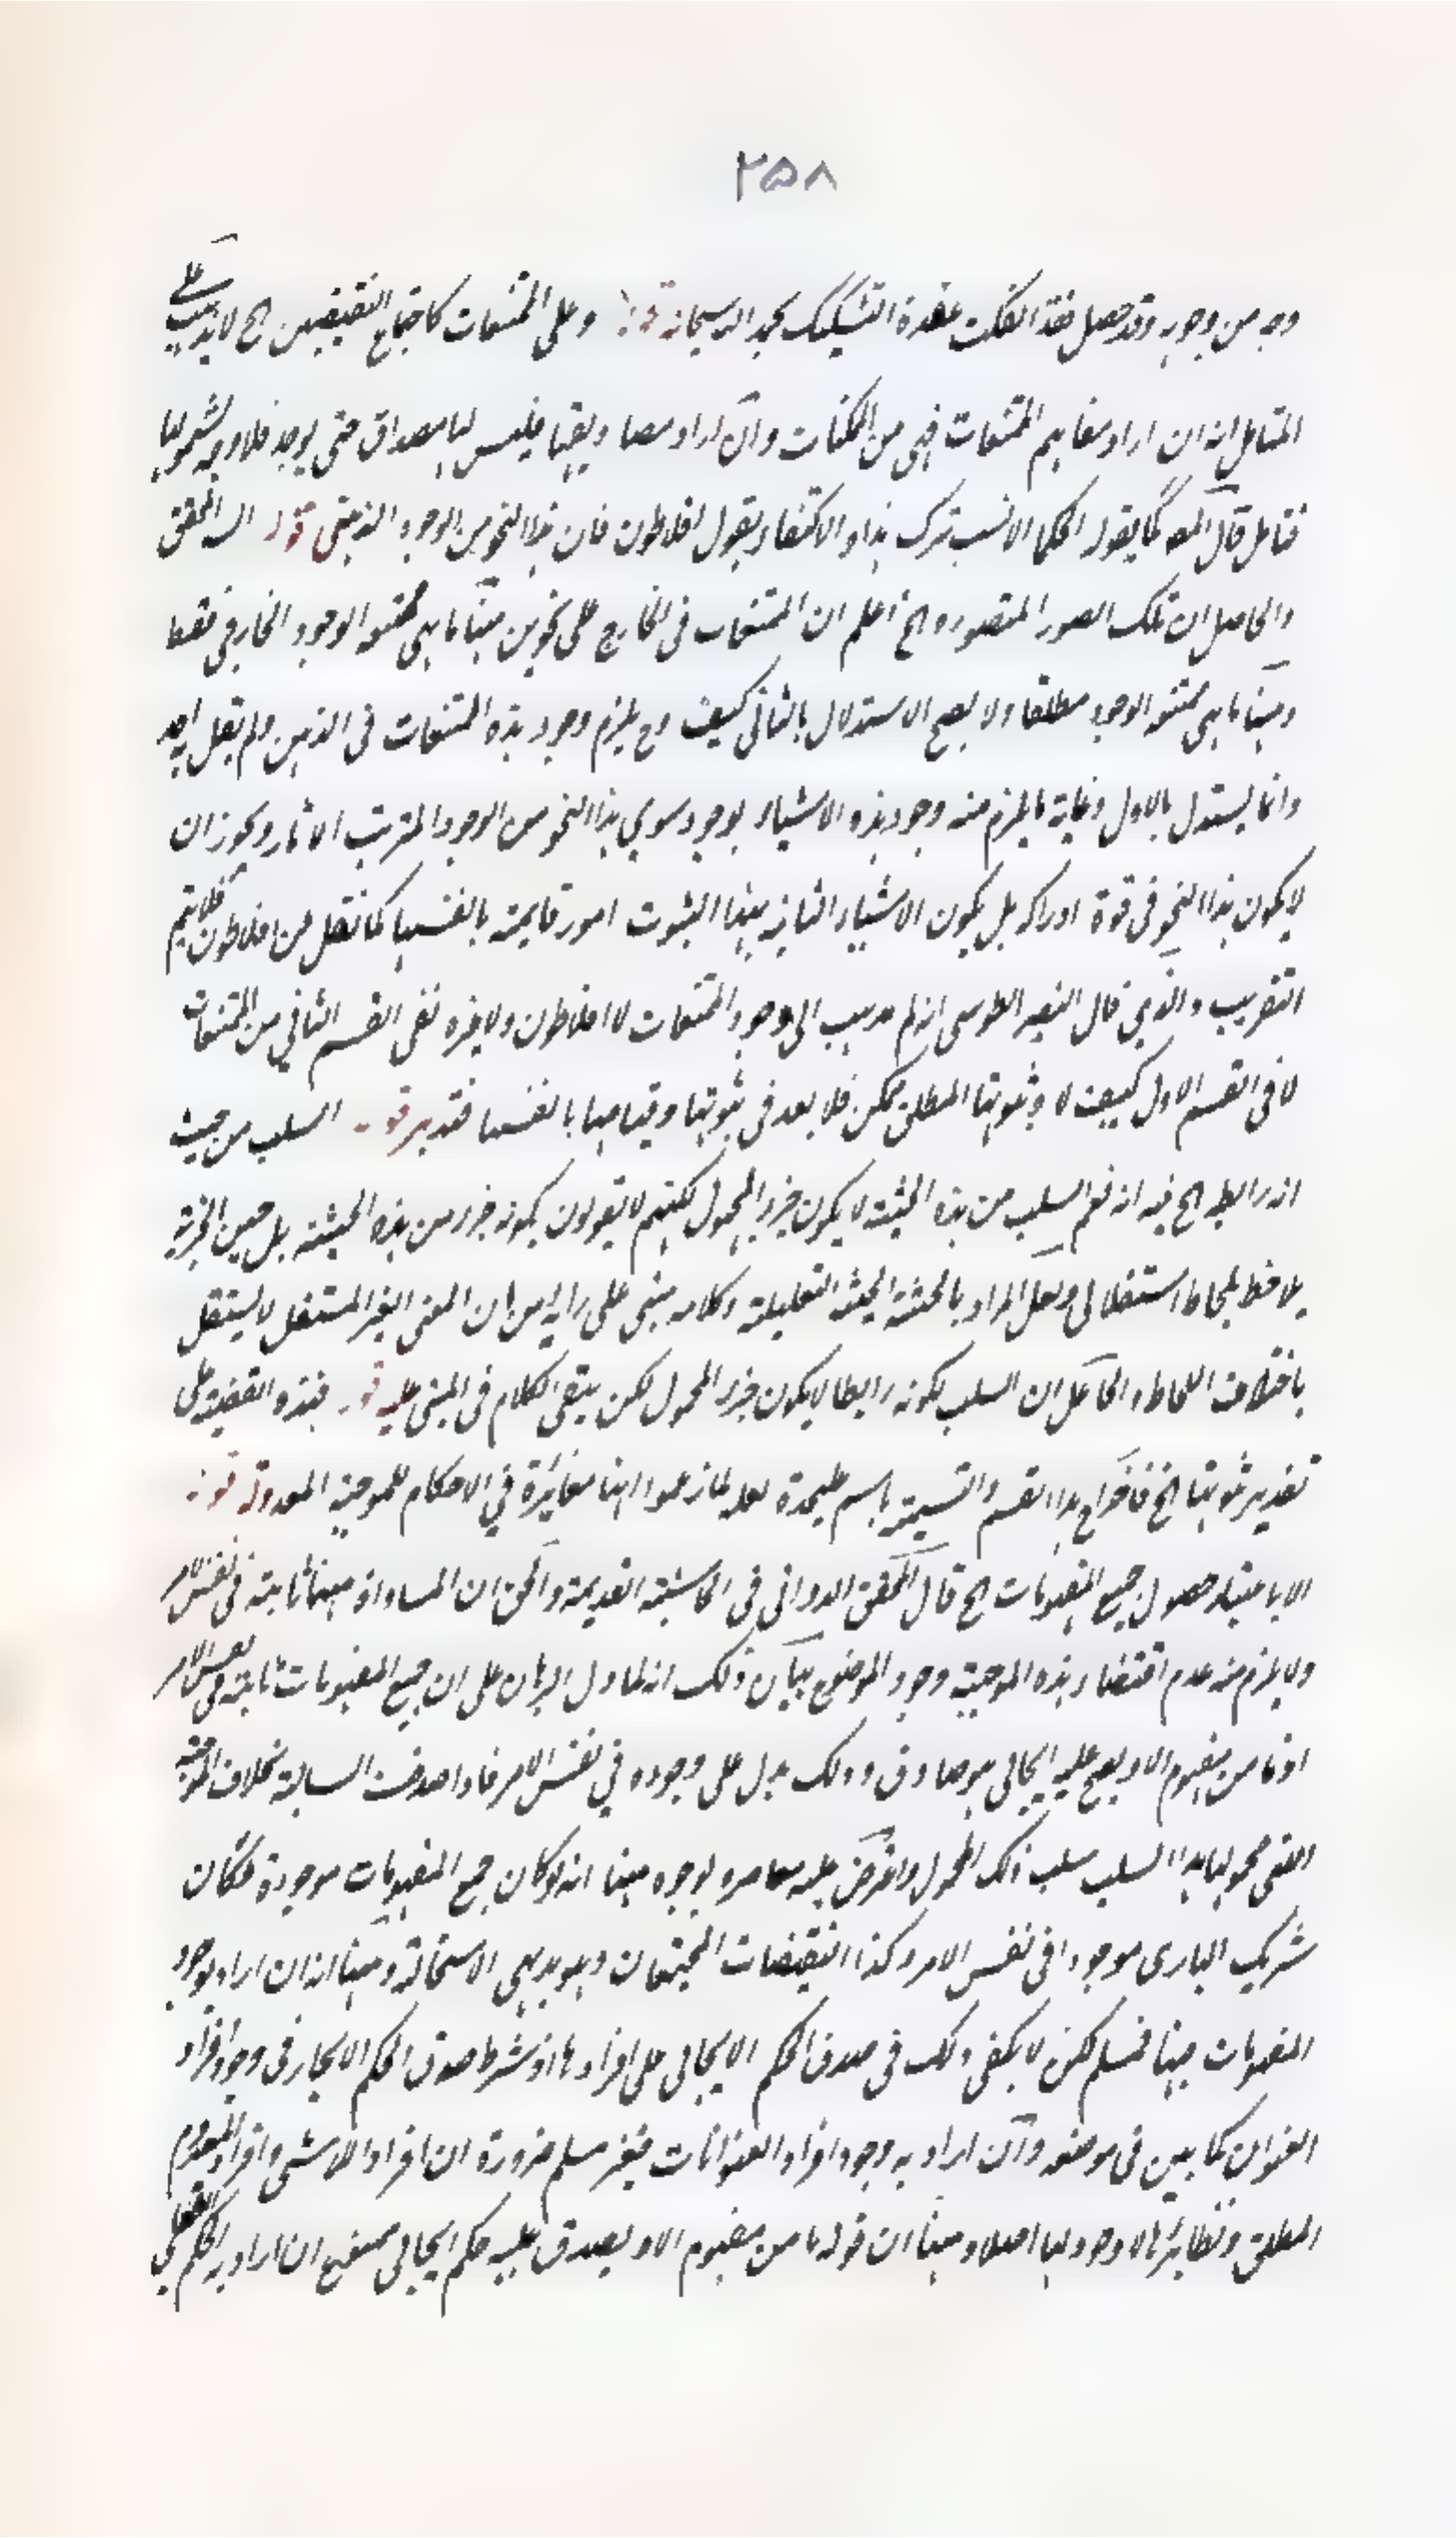 ٢٥٨
وجه من وجوه وقد حصل فقد انفكت عقدة التشكيك بحمد الله سبحانه قوله وعلى الممتنعات كاجتماع النقيضين الخ لا يذهب على
المتامل انه ان اراد مفاهيم الممتنعات فهى من الممكنات وان اراد مصاديقها فليس لها مصداق حتى يوجد فلا وجه لشمولها
فتامل قال المصه كما يقوله الحكما الانسب ترك هذا والاكتفاء بقول افلاطون فان هذا النحو من الوجود الذهنى قوله المحقق
والحاصل ان تلك الصور المتصوره الخ اعلم ان الممتنعات فى الخارج على نحوين منها ما هى ممتنعه الوجود الخارجى فقط
ومنها ما هى ممتنعه الوجود مطلقا ولا يصح الاستدلال بالثانى كيف وح يلزم وجود هذه الممتنعات فى الذهن ولم يقل به احد
وانما يستدل بالاول وغاية ما يلزم منه وجود هذه الاشياء بوجود سوى هذا النحو من الوجود المترتب الاثار ويجوز ان
لا يكون هذا النحو فى قوة ادراكه بل يكون الاشياء الثابته بهذا الثبوت امور قايمة بانفسها كما نقل عن افلاطون فلا يتم
التقريب والذى قال النصير الطوسى انه لم يذهب الى وجود الممتنعات لا افلاطون ولا غيره نفى القسم الثانى من الممتنعات
لا فى القسم الاول كيف لا وثبوتها المطلق ممكن فلا بعد فى ثبوتها وقيامها بانفسها فتدبر قوله السلب من حيث
انه رابط الخ فيه انه نعم السلب من هذه الحيثية لا يكون جزء المحمول لكنهم لا يقولون بكونه جزء من هذه الحيثية بل حين الجزئية
يلاحظ بلحاظ استقلالى ولعل المراد بالحيثية الحيثية التعليلية وكلامه مبنى على رايه من ان المعنى الغير المستقل لا يستقل
باختلاف اللحاظ والحاصل ان السلب لكونه رابطا لا يكون جزء المحمول لكن يبقى الكلام فى المبنى عليه قوله فهذه القضية على
تقدير ثبوتها الخ فاخراج هذا القسم والتسمية باسم عليحدة لعله لما زعموا انها مغايرة فى الاحكام للموجبة المعدولة قوله
الا باعتبار حصول جميع المفهومات الخ قال المحقق الدوانى فى الحاشية القديمة والحق ان المساواة بينهما ثابتة فى نفس الامر
ولا يلزم منه عدم اقتضاء هذه الموجبة وجود الموضوع بيان ذلك انه لما دل البرهان على ان جميع المفهومات ثابتة فى نفس الامر
اذ ما من مفهوم الا ويصح عليه ايجابى هو صادق وذلك يدل على وجوده فى نفس الامر فاذا صدقت السالبة بخلاف الموجبة
التى محمولها هذا السلب سلب ذلك المحمول واعترض عليه معاصره بوجوه منها انه لو كان جميع المفهومات موجودة لكان
شريك البارى موجودا فى نفس الامر وكذا النقيضات المجتمعان وهو بديهى الاستحالة ومنها انه ان اراد بوجود
المفهومات منها فمسلم لكن لا يكفى ذلك فى صدق الحكم الايجابى على افرادها اذ شرط صدق الحكم الايجابى وجود افراد
العنوان كما بين فى موضعه وان اراد به وجود افراد العنوانات فغير مسلم ضرورة ان افراد اللاشى وافراد المعدوم
المطلق ونظايرهما لا وجود لها اصلا ومنها ان قوله ما من مفهوم الا ويصدق عليه حكم ايجابى ممنوع ان اراد به الحكم الفعلى